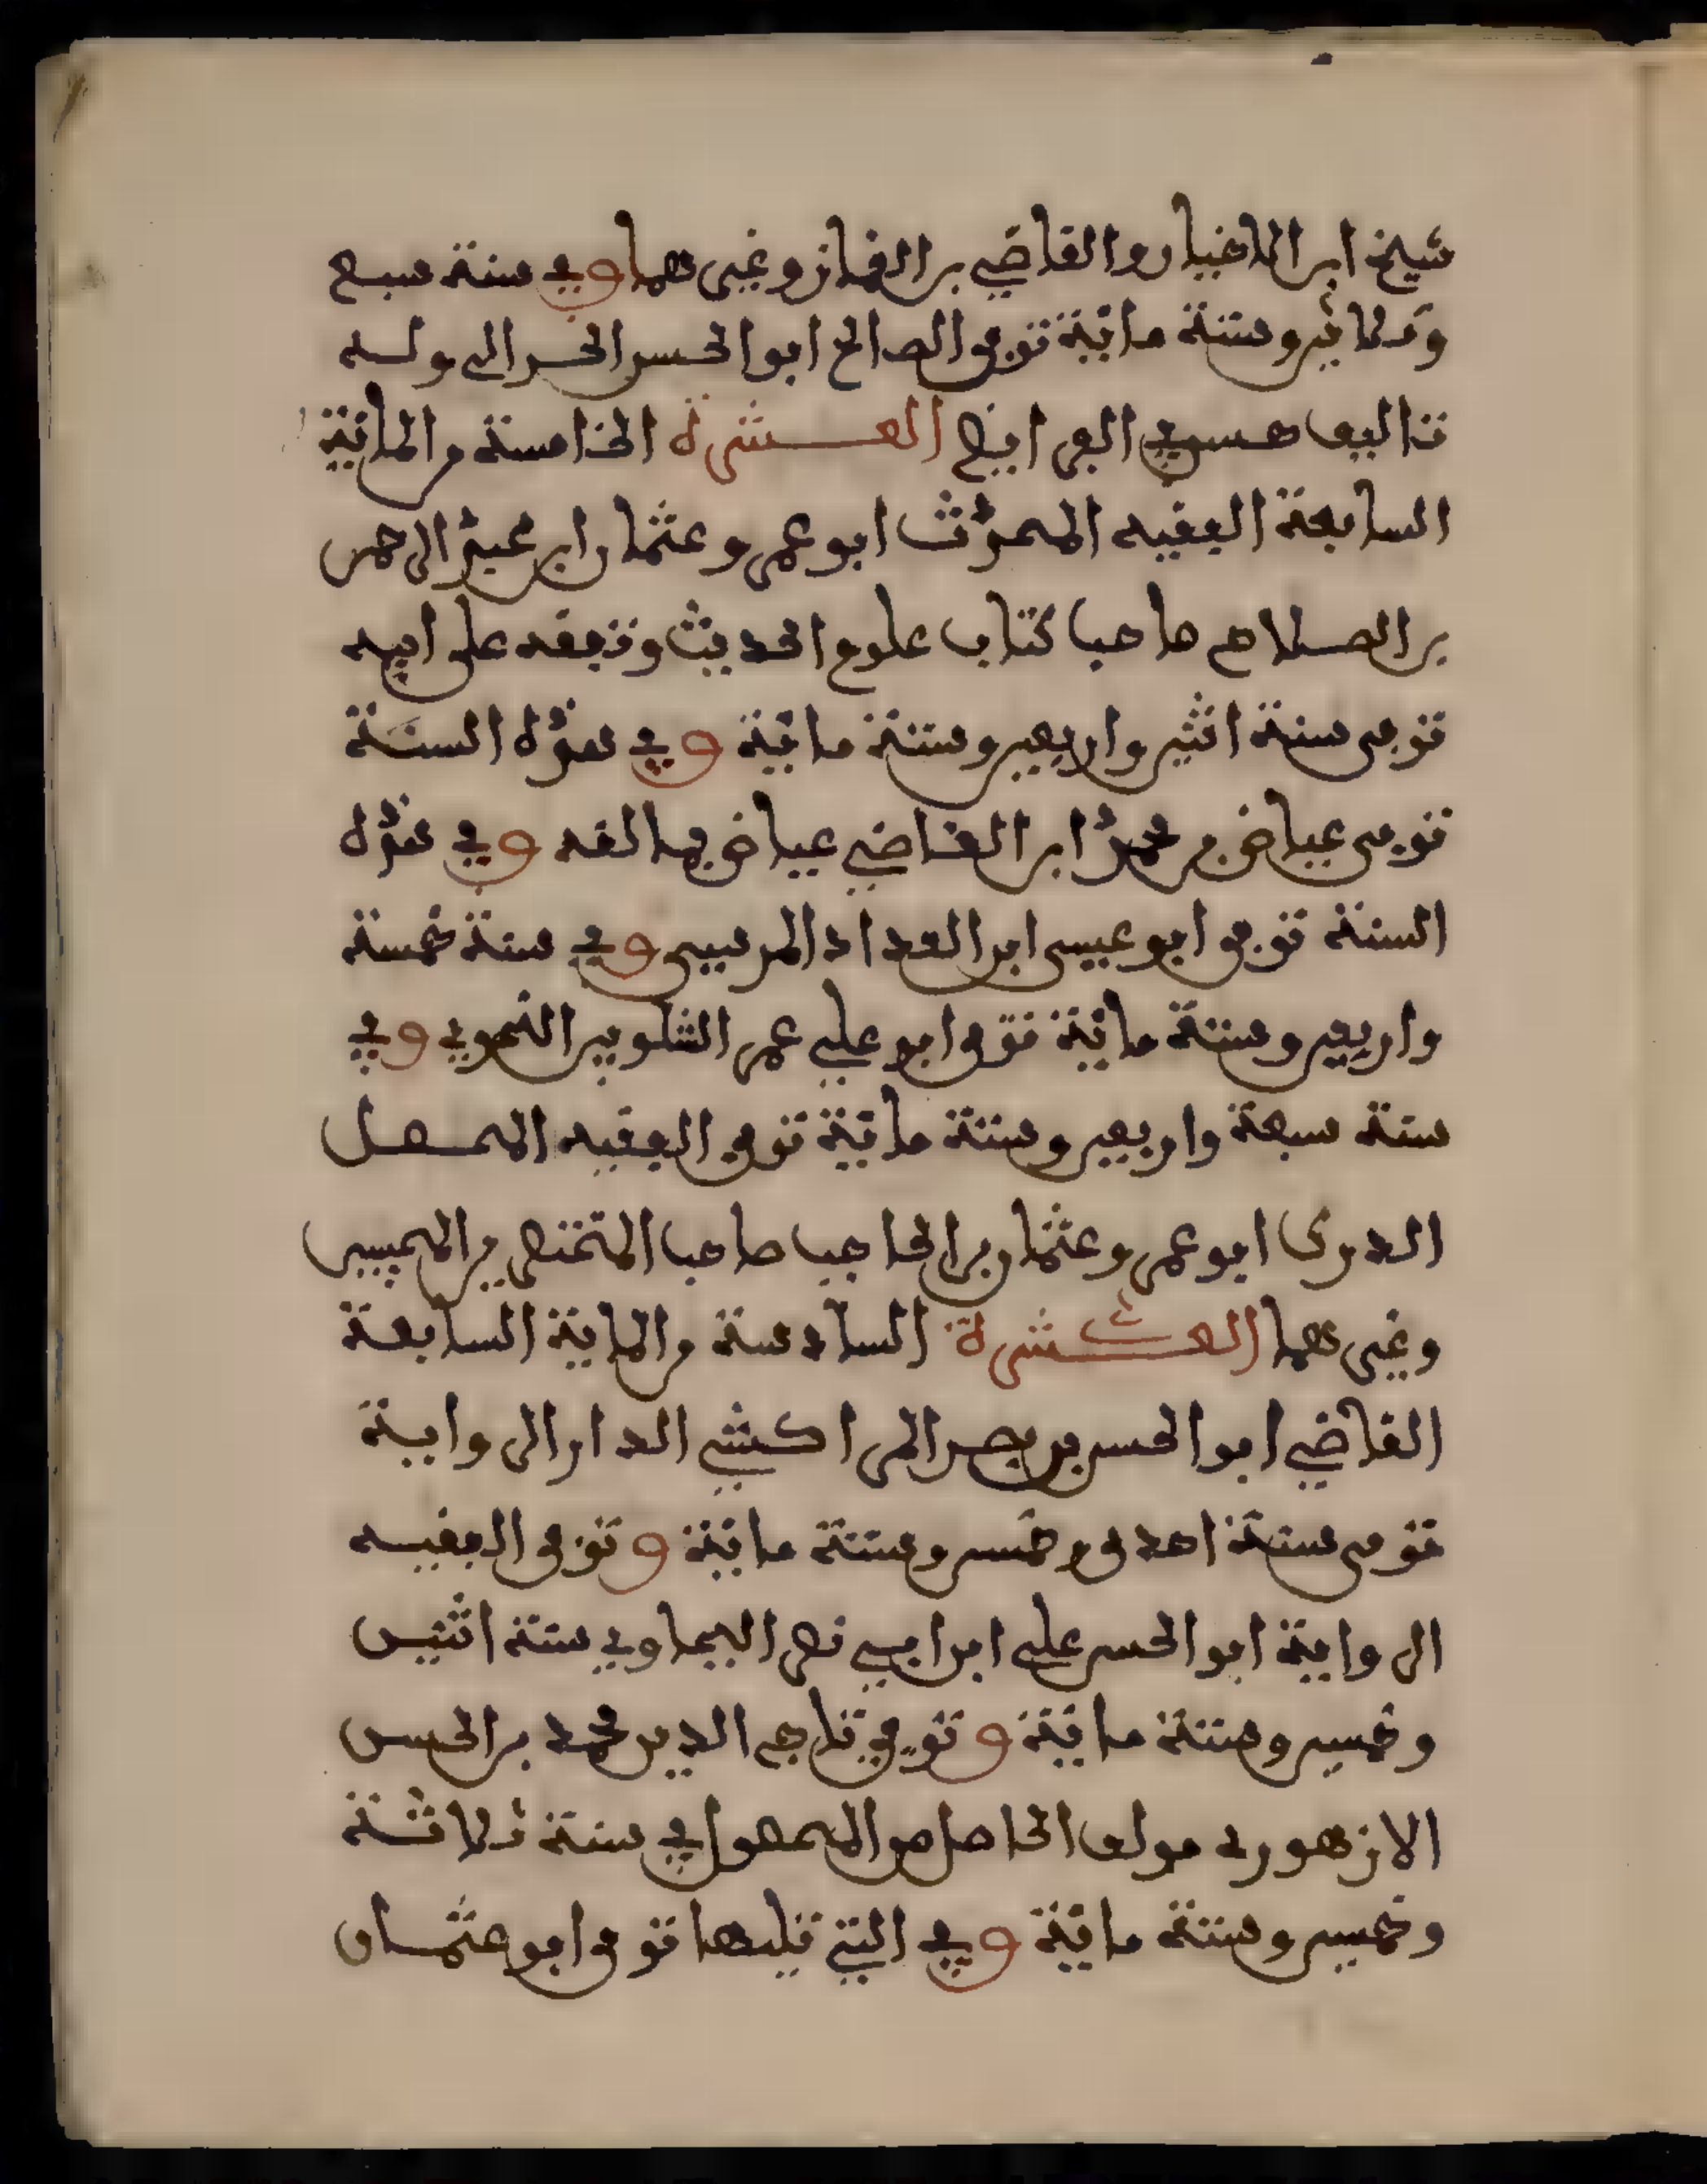 شيخ ابن الاخيار والقاضي بن الغماز وغيرهما وفي سنة سبع
وثلاثين وستة مائية توفي الصالح ابو الحسن الحرالي وله
تاليف حسن في الفرايض العشرة الخامسة من المائية
السابعة الفقيه المحدث ابو عمرو عثمان ابن عبد الرحمن
بن الصلاح صاحب كتاب علوم الحديث وتفقه على ابيه
توفى سنة اثنين واربعين وستة مائية وفي هذه السنة
توفى عياض بن محمد ابن القاضي عياض بمالقه وفي هذه
السنة توفي ابو عيسى ابن الحداد المرسي وفي سنة خمسة
واربعين وستة مائية توفي ابو علي عمر الشلوبين النحوي وفي
سنة سبعة واربعين وستة مائية توفي الفقيه المحصل
المدرك ابو عمرو عثمان بن الحاجب صاحب المختصرين المحبسين
وغيرهما العشرة السادسة من الماية السابعة
القاضي ابو الحسن بن بصر المراكشي الدار الرواية
توفى سنة احدى وخمسين وستة مائية وتوفي الفقيه
الرواية ابو الحسن علي ابن ابي نصر البجاوي سنة اثنين
وخمسين وستة مائية وتوفي تاج الدين محمد بن الحسن
الازهوري مولف الحاصل من المحصول في سنة ثلاثة
وخمسين وستة مائية وفي التي تليها توفي ابو عثمان